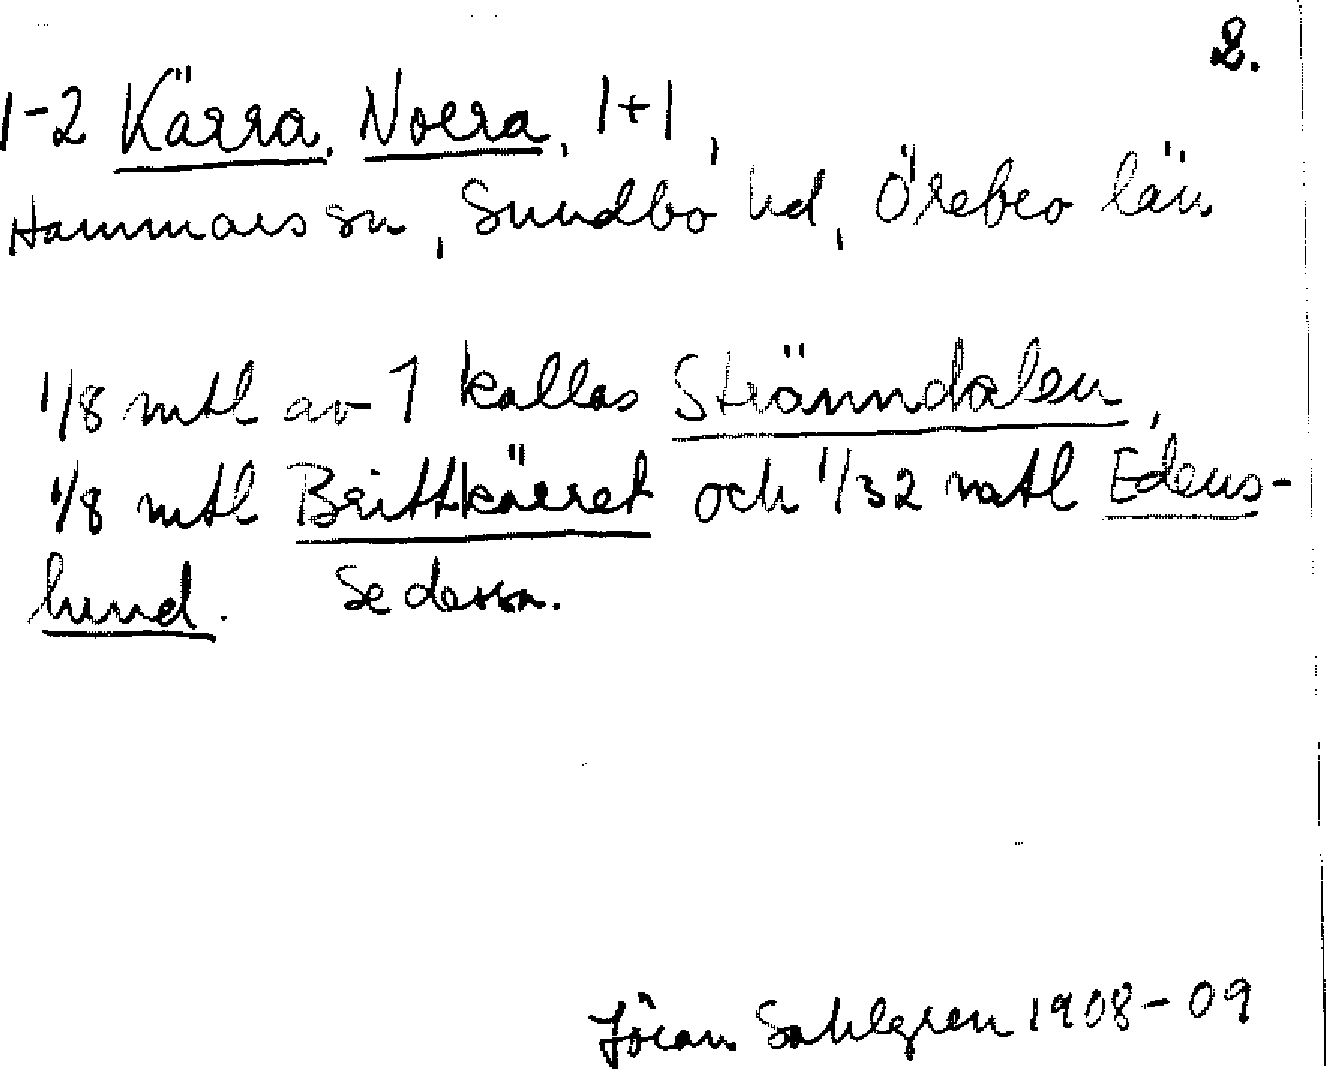 2.
1-2 Kärra, Norra, 1+1,
Hammars sn, Sundbo hd, Örebro län
1/8 mtl av 1 kallas Strånndalen,
1/8 mtl Brittkärret och 1/32 mtl Edens-
lund. Se dessa.
Jöran Sahlgren 1908-09